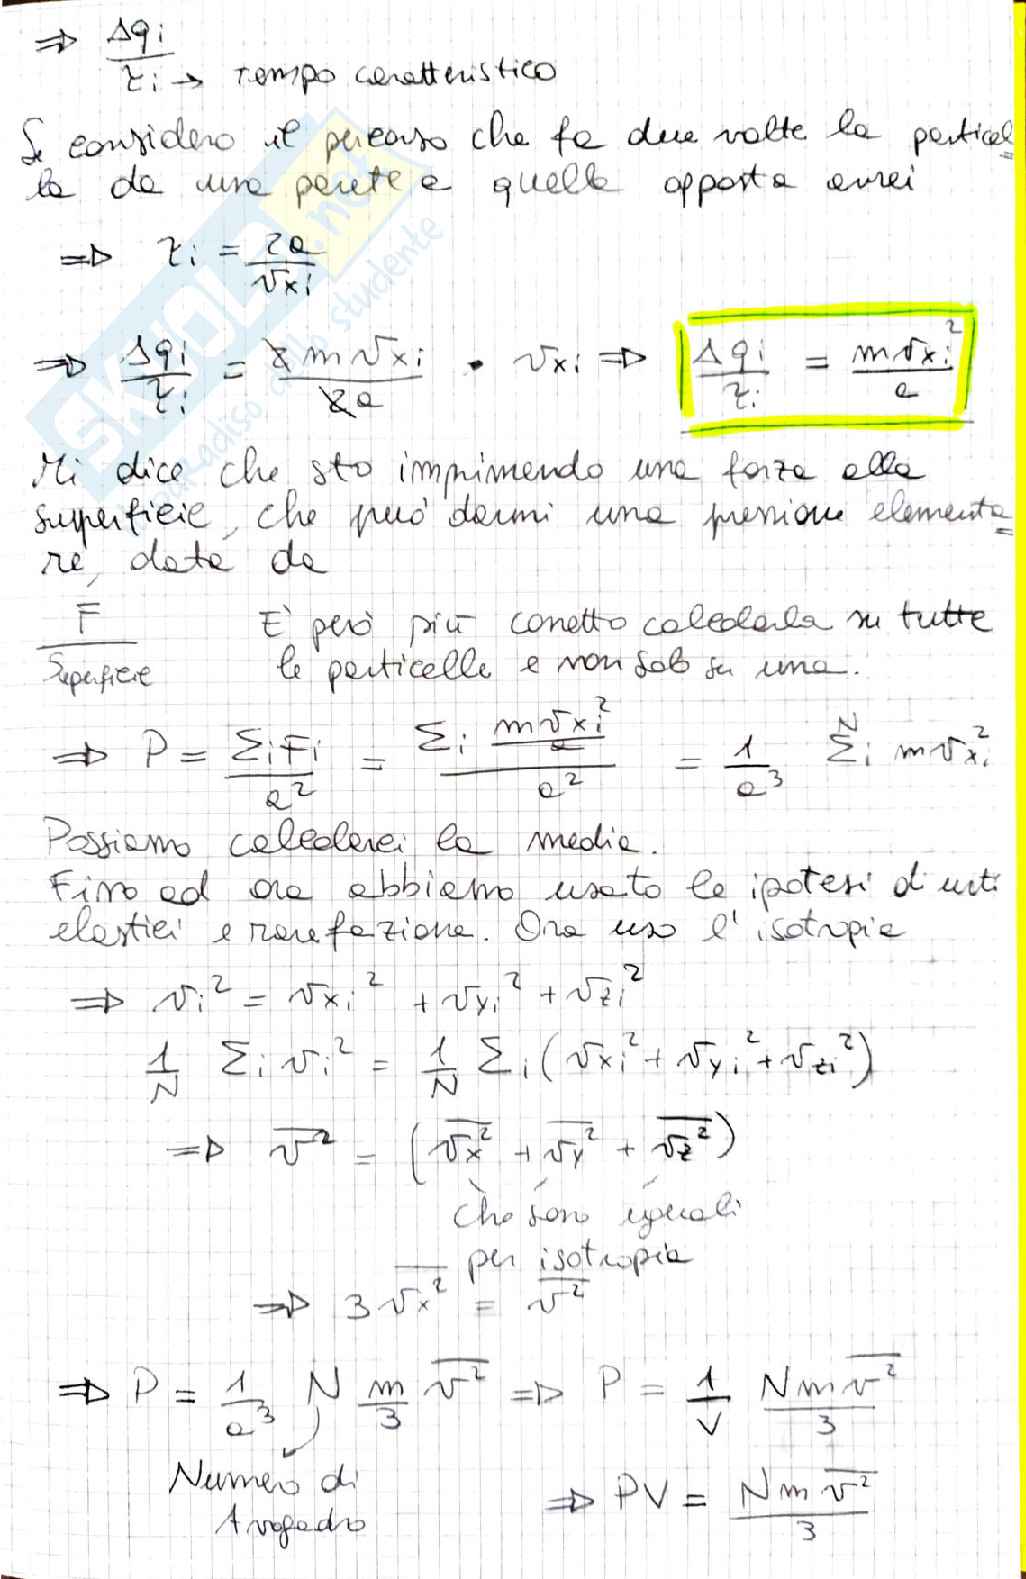 ⇒ Δqi / τi → tempo caratteristico
Se considero il percorso che fa due volte la particel=
la da una parete a quella opposta avrei
⇒ τi = 2a / vxi
⇒ Δqi / τi = 2mvxi / 2a · vxi ⇒ Δqi / τi = mvxi² / a
Mi dice che sto imprimendo una forza alla
superficie, che può darmi una pressione elementa=
re, data da
F / Superficie
È però più corretto calcolarla su tutte
le particelle e non solo su una.
⇒ P = ΣiFi / a² = Σi (mvxi² / a) / a² = 1 / a³ Σi^N mvxi²
Possiamo calcolarci la media.
Fino ad ora abbiamo usato le ipotesi di urti
elastici e rarefazione. Ora uso l'isotropia
⇒ vi² = vxi² + vyi² + vzi²
1/N Σi vi² = 1/N Σi (vxi² + vyi² + vzi²)
⇒ v̅² = (v̅x² + v̅y² + v̅z²)
che sono uguali
per isotropia
⇒ 3v̅x² = v̅²
⇒ P = 1/a³ N m/3 v̅² ⇒ P = 1/V Nmv̅² / 3
Numero di
Avogadro
⇒ PV = Nmv̅² / 3
SKUOLA.net
paradiso dello studente